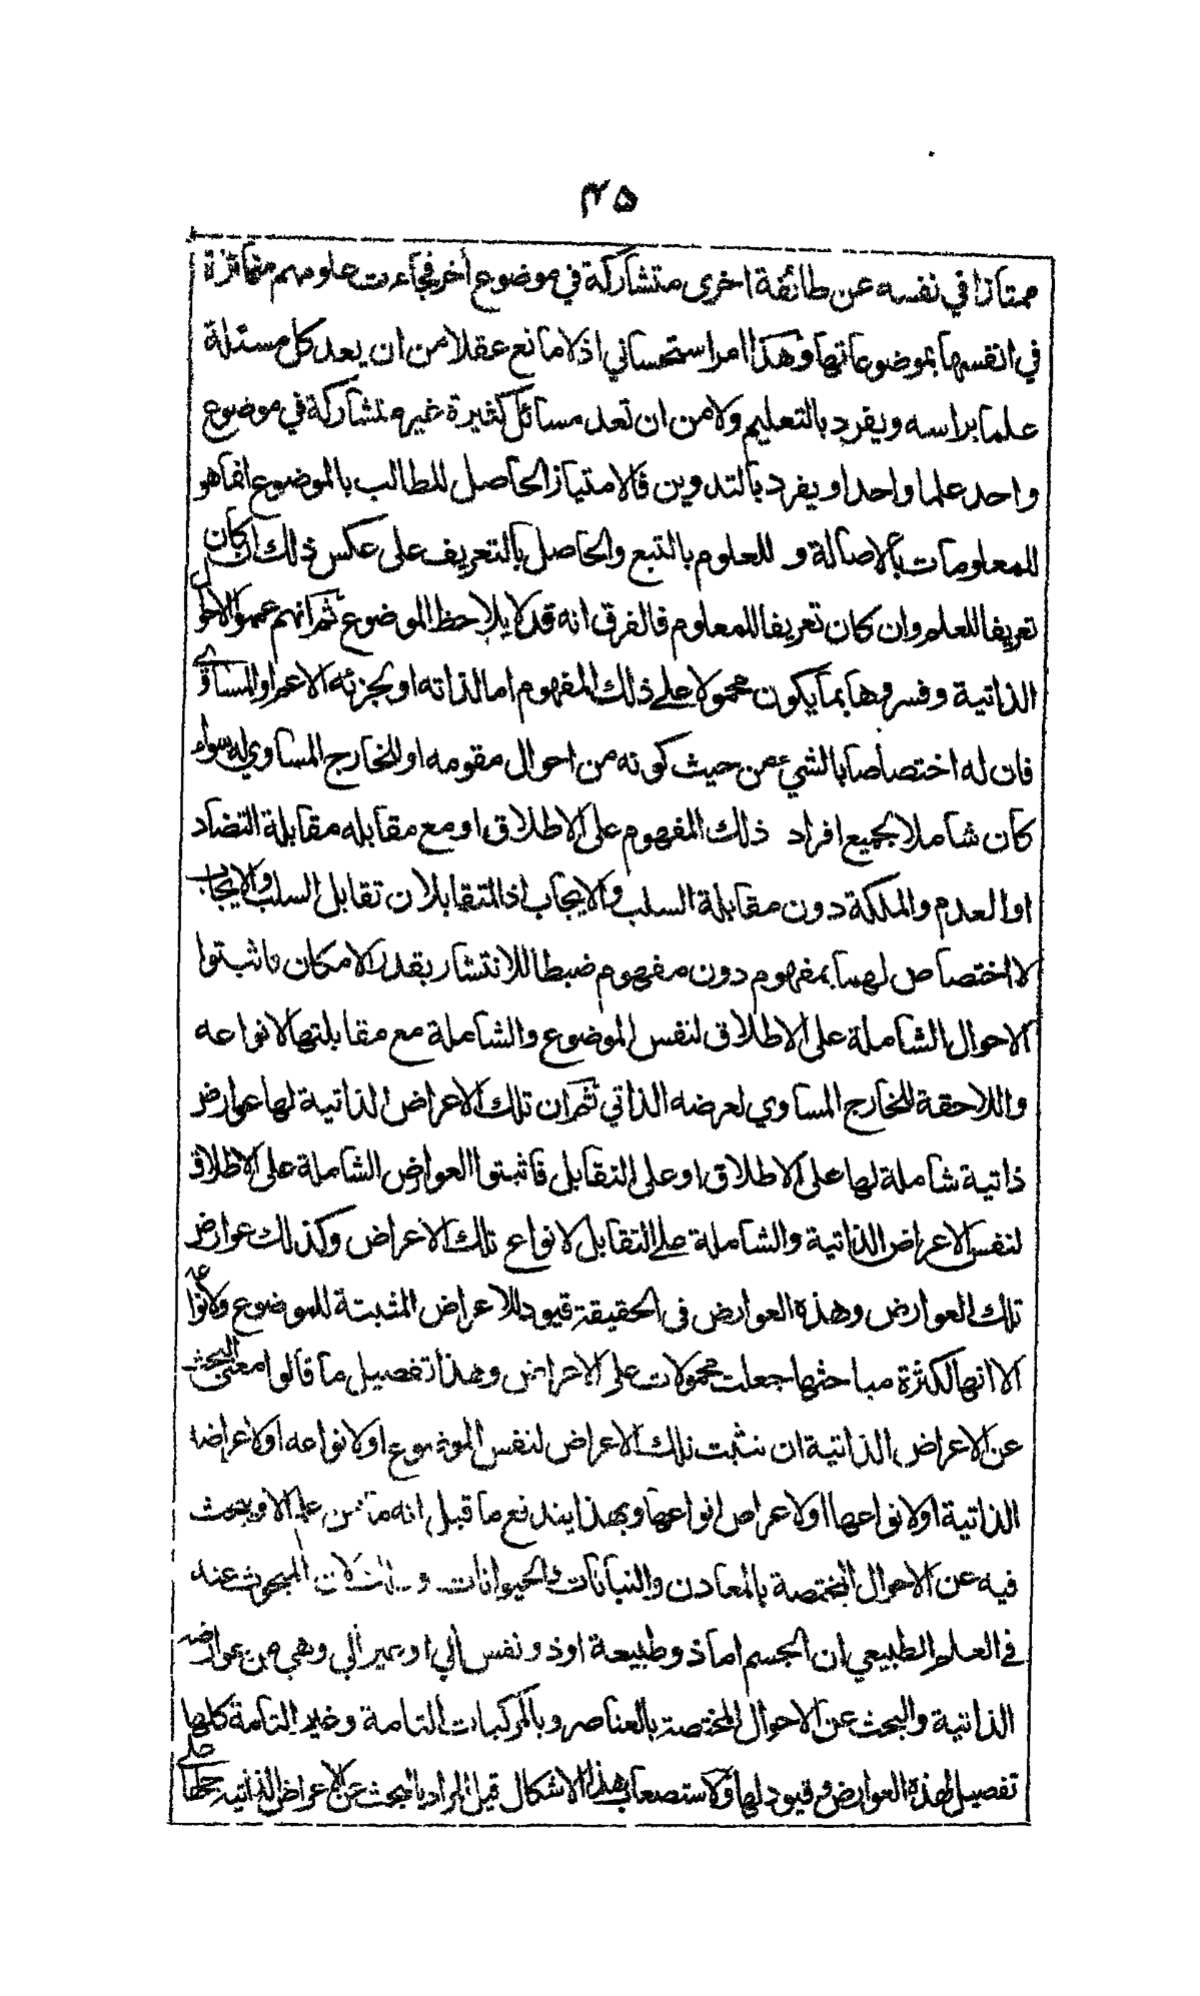 ٢٥
ممتازا في نفسه عن طائفة اخرى متشاركة في موضوع أخر فجاءت علومهم متمائزة
في انفسها بموضوعاتها وهذا امر استحساني اذ لا مانع عقلا من ان يعد كل مسئلة
علما براسه ويفرد بالتعليم ولا من ان تعد مسائل كثيرة غير متشاركة في موضوع
واحد علما واحدا ويفرد بالتدوين فالامتياز الحاصل للطالب بالموضوع انما هو
للمعلومات بالاصالة وللعلوم بالتبع والحاصل بالتعريف على عكس ذلك ان كان
تعريفا للعلم وان كان تعريفا للمعلوم فالفرق انه قد لا يلاحظ الموضوع ثم انهم عمموا الاحوال
الذاتية وفسروها بما يكون محمولا على ذلك المفهوم اما لذاته او لجزئه الاعم او المساوي
فان له اختصاصا بالشيء من حيث كونه من احوال مقومه او للخارج المساوي له سواء
كان شاملا لجميع افراد ذلك المفهوم على الاطلاق او مع مقابله مقابلة التضاد
او العدم والملكة دون مقابلة السلب والايجاب اذ المتقابلان تقابل السلب والايجاب
لا اختصاص لهما بمفهوم دون مفهوم ضبطا للانتشار بقدر الامكان فاثبتوا
الاحوال الشاملة على الاطلاق لنفس الموضوع والشاملة مع مقابلتها لانواعه
واللاحقة للخارج المساوي لعرضه الذاتي ثم ان تلك الاعراض الذاتية لها عوارض
ذاتية شاملة لها على الاطلاق او على التقابل فاثبتوا العوارض الشاملة على الاطلاق
لنفس الاعراض الذاتية والشاملة على التقابل لانواع تلك الاعراض وكذلك عوارض
تلك العوارض وهذه العوارض في الحقيقة قيود للاعراض المثبتة للموضوع ولانواعه
الا انها لكثرة مباحثها جعلت محمولات على الاعراض وهذا تفصيل ما قالوا معنى البحث
عن الاعراض الذاتية ان تثبت تلك الاعراض لنفس الموضوع او لانواعه او لاعراضه
الذاتية او لانواعها او لاعراض انواعها وبهذا يندفع ما قيل انه ما من علم الا ويبحث
فيه عن الاحوال المختصة بالمعادن والنباتات والحيوانات و المبحوث عنه
في العلم الطبيعي ان الجسم اما ذو طبيعة او ذو نفس ألي او غير ألي وهي من عوارضه
الذاتية والبحث عن الاحوال المختصة بالعناصر وبالمركبات التامة وغير التامة كلها
تفصيل لهذه العوارض وقيود لها ولاستصعاب هذا الاشكال قيل المراد بالبحث عن الاعراض الذاتية حملها على